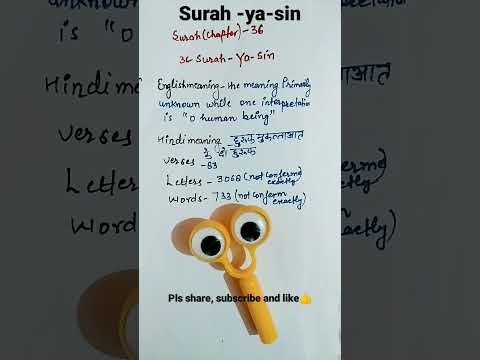 Surah -ya-sin
Surah(Chapter)-36
36-Surah-Ya-Sin
English meaning-the meaning Primarily
unknown while one interpretation
is "O human being"
Hindi meaning - हुरूफ मुक़त्तआत
के दो हुरूफ
verses -83
Letters - 3068 (not confirmed exactly)
words- 733 (not confirm exactly)
Pls share, subscribe and like👍